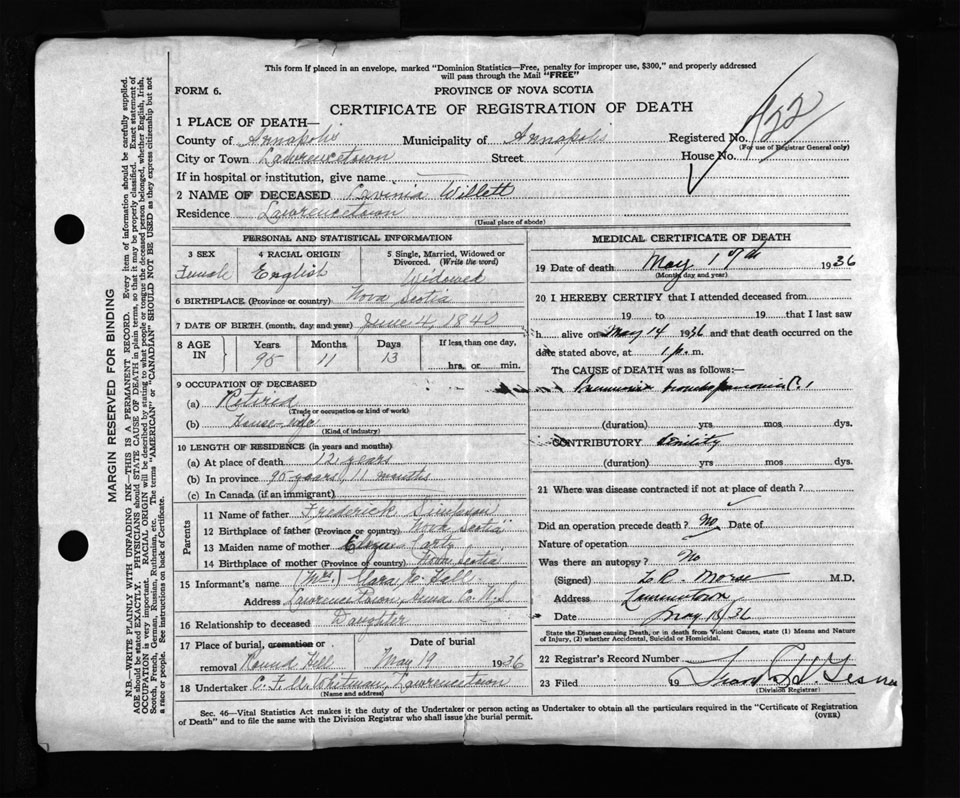 This form if placed in an envelope, marked "Dominion Statistics—Free, penalty for improper use, $300," and properly addressed
will pass through the Mail "FREE"
FORM 6.
PROVINCE OF NOVA SCOTIA
CERTIFICATE OF REGISTRATION OF DEATH
1 PLACE OF DEATH—
County of Annapolis Municipality of Annapolis Registered No. 422
(For use of Registrar General only)
City or Town Lawrencetown Street House No.
If in hospital or institution, give name
2 NAME OF DECEASED Lavinia Willett
Residence Lawrencetown
(Usual place of abode)
PERSONAL AND STATISTICAL INFORMATION
3 SEX Female
4 RACIAL ORIGIN English
5 Single, Married, Widowed or Divorced. (Write the word) Widowed
6 BIRTHPLACE (Province or country) Nova Scotia
7 DATE OF BIRTH (month, day and year) June 4, 1840
8 AGE IN Years Months Days If less than one day,
95 11 13 hrs. or min.
9 OCCUPATION OF DECEASED
(a) Retired
(Trade or occupation or kind of work)
(b) House-wife
(Kind of industry)
10 LENGTH OF RESIDENCE (in years and months)
(a) At place of death 12 years
(b) In province 95 years, 11 months
(c) In Canada (if an immigrant)
Parents
11 Name of father Frederick Simpson
12 Birthplace of father (Province or country) Nova Scotia
13 Maiden name of mother Carty
14 Birthplace of mother (Province or country) Nova Scotia
15 Informant's name (Mrs.) Clara E. Hall
Address Lawrencetown, Anna. Co. N.S
16 Relationship to deceased Daughter
17 Place of burial, cremation or Date of burial
removal Round Hill May 19 1936
18 Undertaker C. F. Whitman, Lawrencetown
(Name and address)
MEDICAL CERTIFICATE OF DEATH
19 Date of death May 17th 1936
(Month, day and year)
20 I HEREBY CERTIFY that I attended deceased from
19 to 19 that I last saw
h alive on May 14 1936 and that death occurred on the
date stated above, at 1 p. m.
The CAUSE of DEATH was as follows:—
Pneumonia bronchopneumonia
(duration) yrs mos dys.
CONTRIBUTORY Senility
(duration) yrs mos dys.
21 Where was disease contracted if not at place of death?
Did an operation precede death? No Date of
Nature of operation
Was there an autopsy? No
(Signed) L. R. Morse M.D.
Address Lawrencetown
Date May 18/36
State the Disease causing Death, or in death from Violent Causes, state (1) Means and Nature
of Injury, (2) whether Accidental, Suicidal or Homicidal.
22 Registrar's Record Number
23 Filed 19
(Division Registrar)
Sec. 46—Vital Statistics Act makes it the duty of the Undertaker or person acting as Undertaker to obtain all the particulars required in the "Certificate of Registration
of Death" and to file the same with the Division Registrar who shall issue the burial permit. (OVER)
MARGIN RESERVED FOR BINDING
N.B.—WRITE PLAINLY WITH UNFADING INK—THIS IS A PERMANENT RECORD. Every item of information should be carefully supplied.
AGE should be stated EXACTLY. PHYSICIANS should STATE CAUSE OF DEATH in plain terms, so that it may be properly classified. Exact statement of
OCCUPATION is very important. RACIAL ORIGIN will be described by stating to what people or tongue the deceased person belonged, whether English, Irish,
Scotch, French, German, Russian, Ruthenian, etc. The terms "AMERICAN" or "CANADIAN" SHOULD NOT BE USED as they express citizenship but not
a race or people. See instructions on back of Certificate.